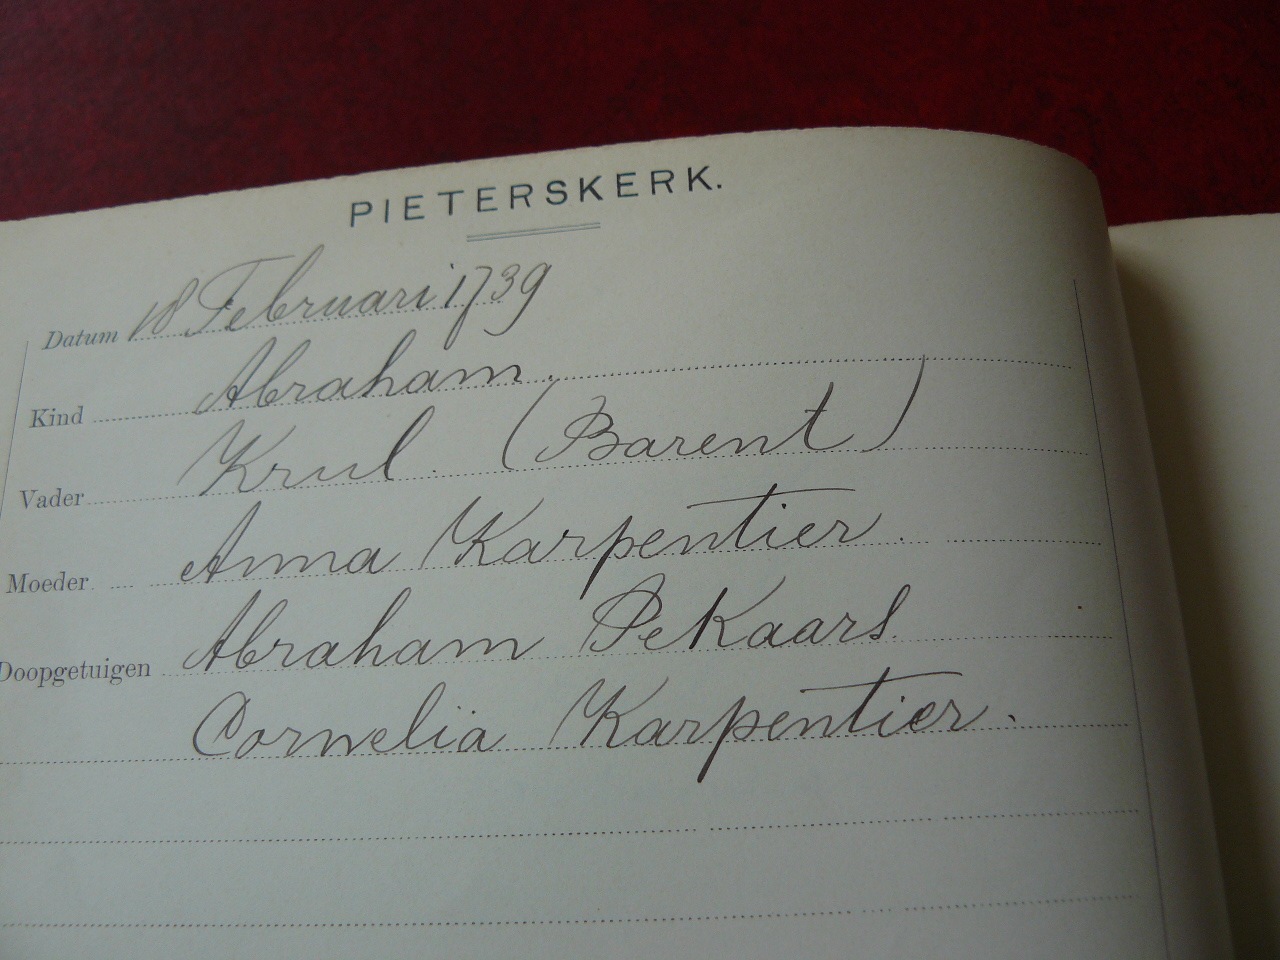 PIETERSKERK.
Datum 18 Februari 1739
Kind Abraham.
Vader Krul. (Barent)
Moeder Anna Karpentier.
Doopgetuigen Abraham PeKaars.
Cornelia Karpentier.